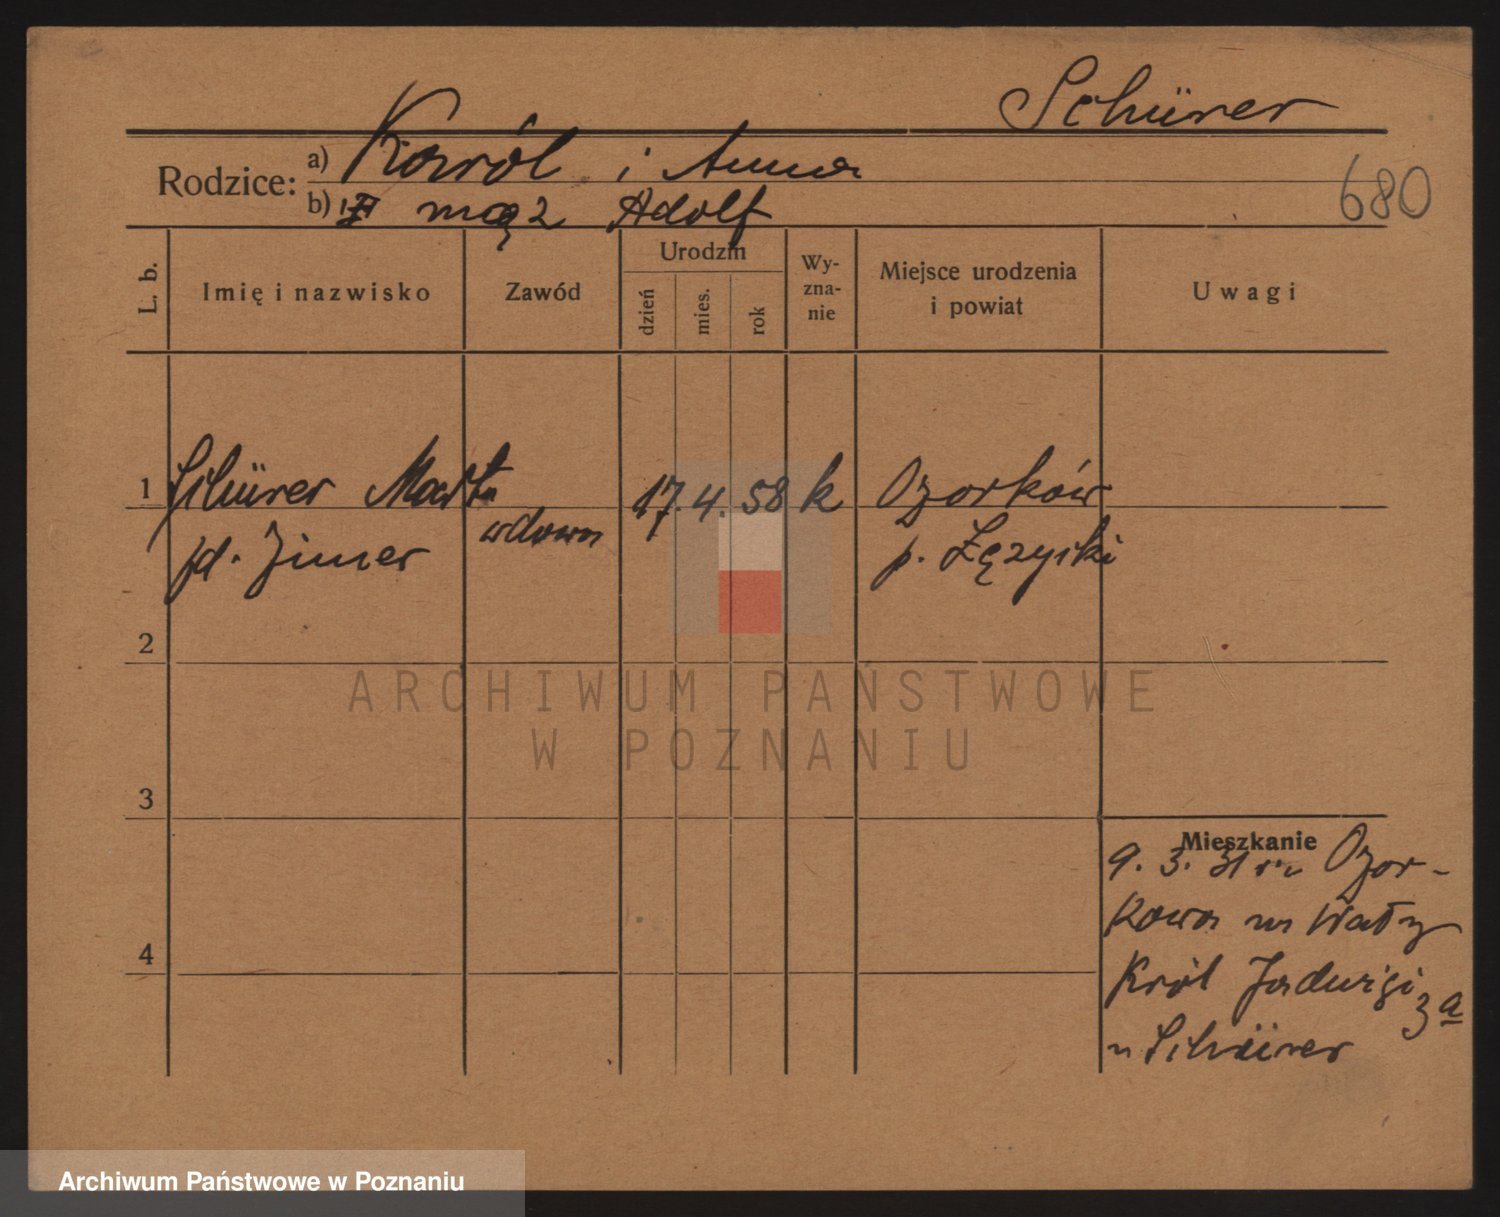 Schürer
Rodzice: a) Karól i Anna
b) mąż Adolf
680
L. b.
Imię i nazwisko
Zawód
Urodzin
dzień
mies.
rok
Wy-
zna-
nie
Miejsce urodzenia
i powiat
Uwagi
1
Schürer Marta
zd. Zimer
wdowa
17. 4. 58
k
Ozorków
p. Łęczycki
2
3
4
Mieszkanie
9. 3. 31 r. z Ozor-
kowa na Wały
Król Jadwigi 3a
u Schürer
ARCHIWUM PAŃSTWOWE
W POZNANIU
Archiwum Państwowe w Poznaniu